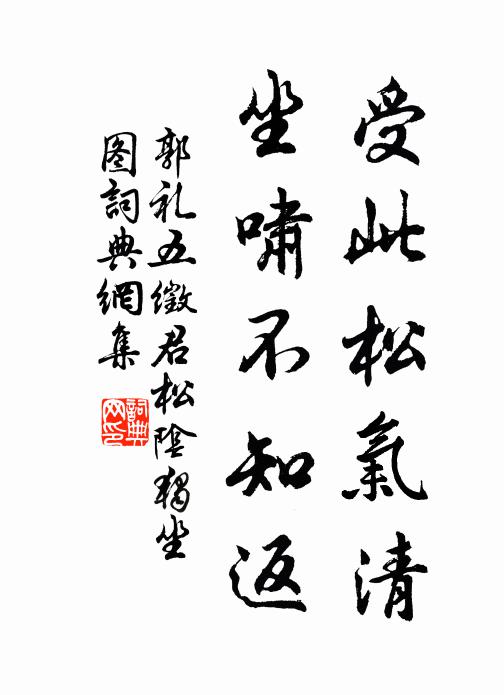 受此松氣清
坐嘯不知返
郭礼五徵君松陰獨坐
圖詞典網集
詞典
网印